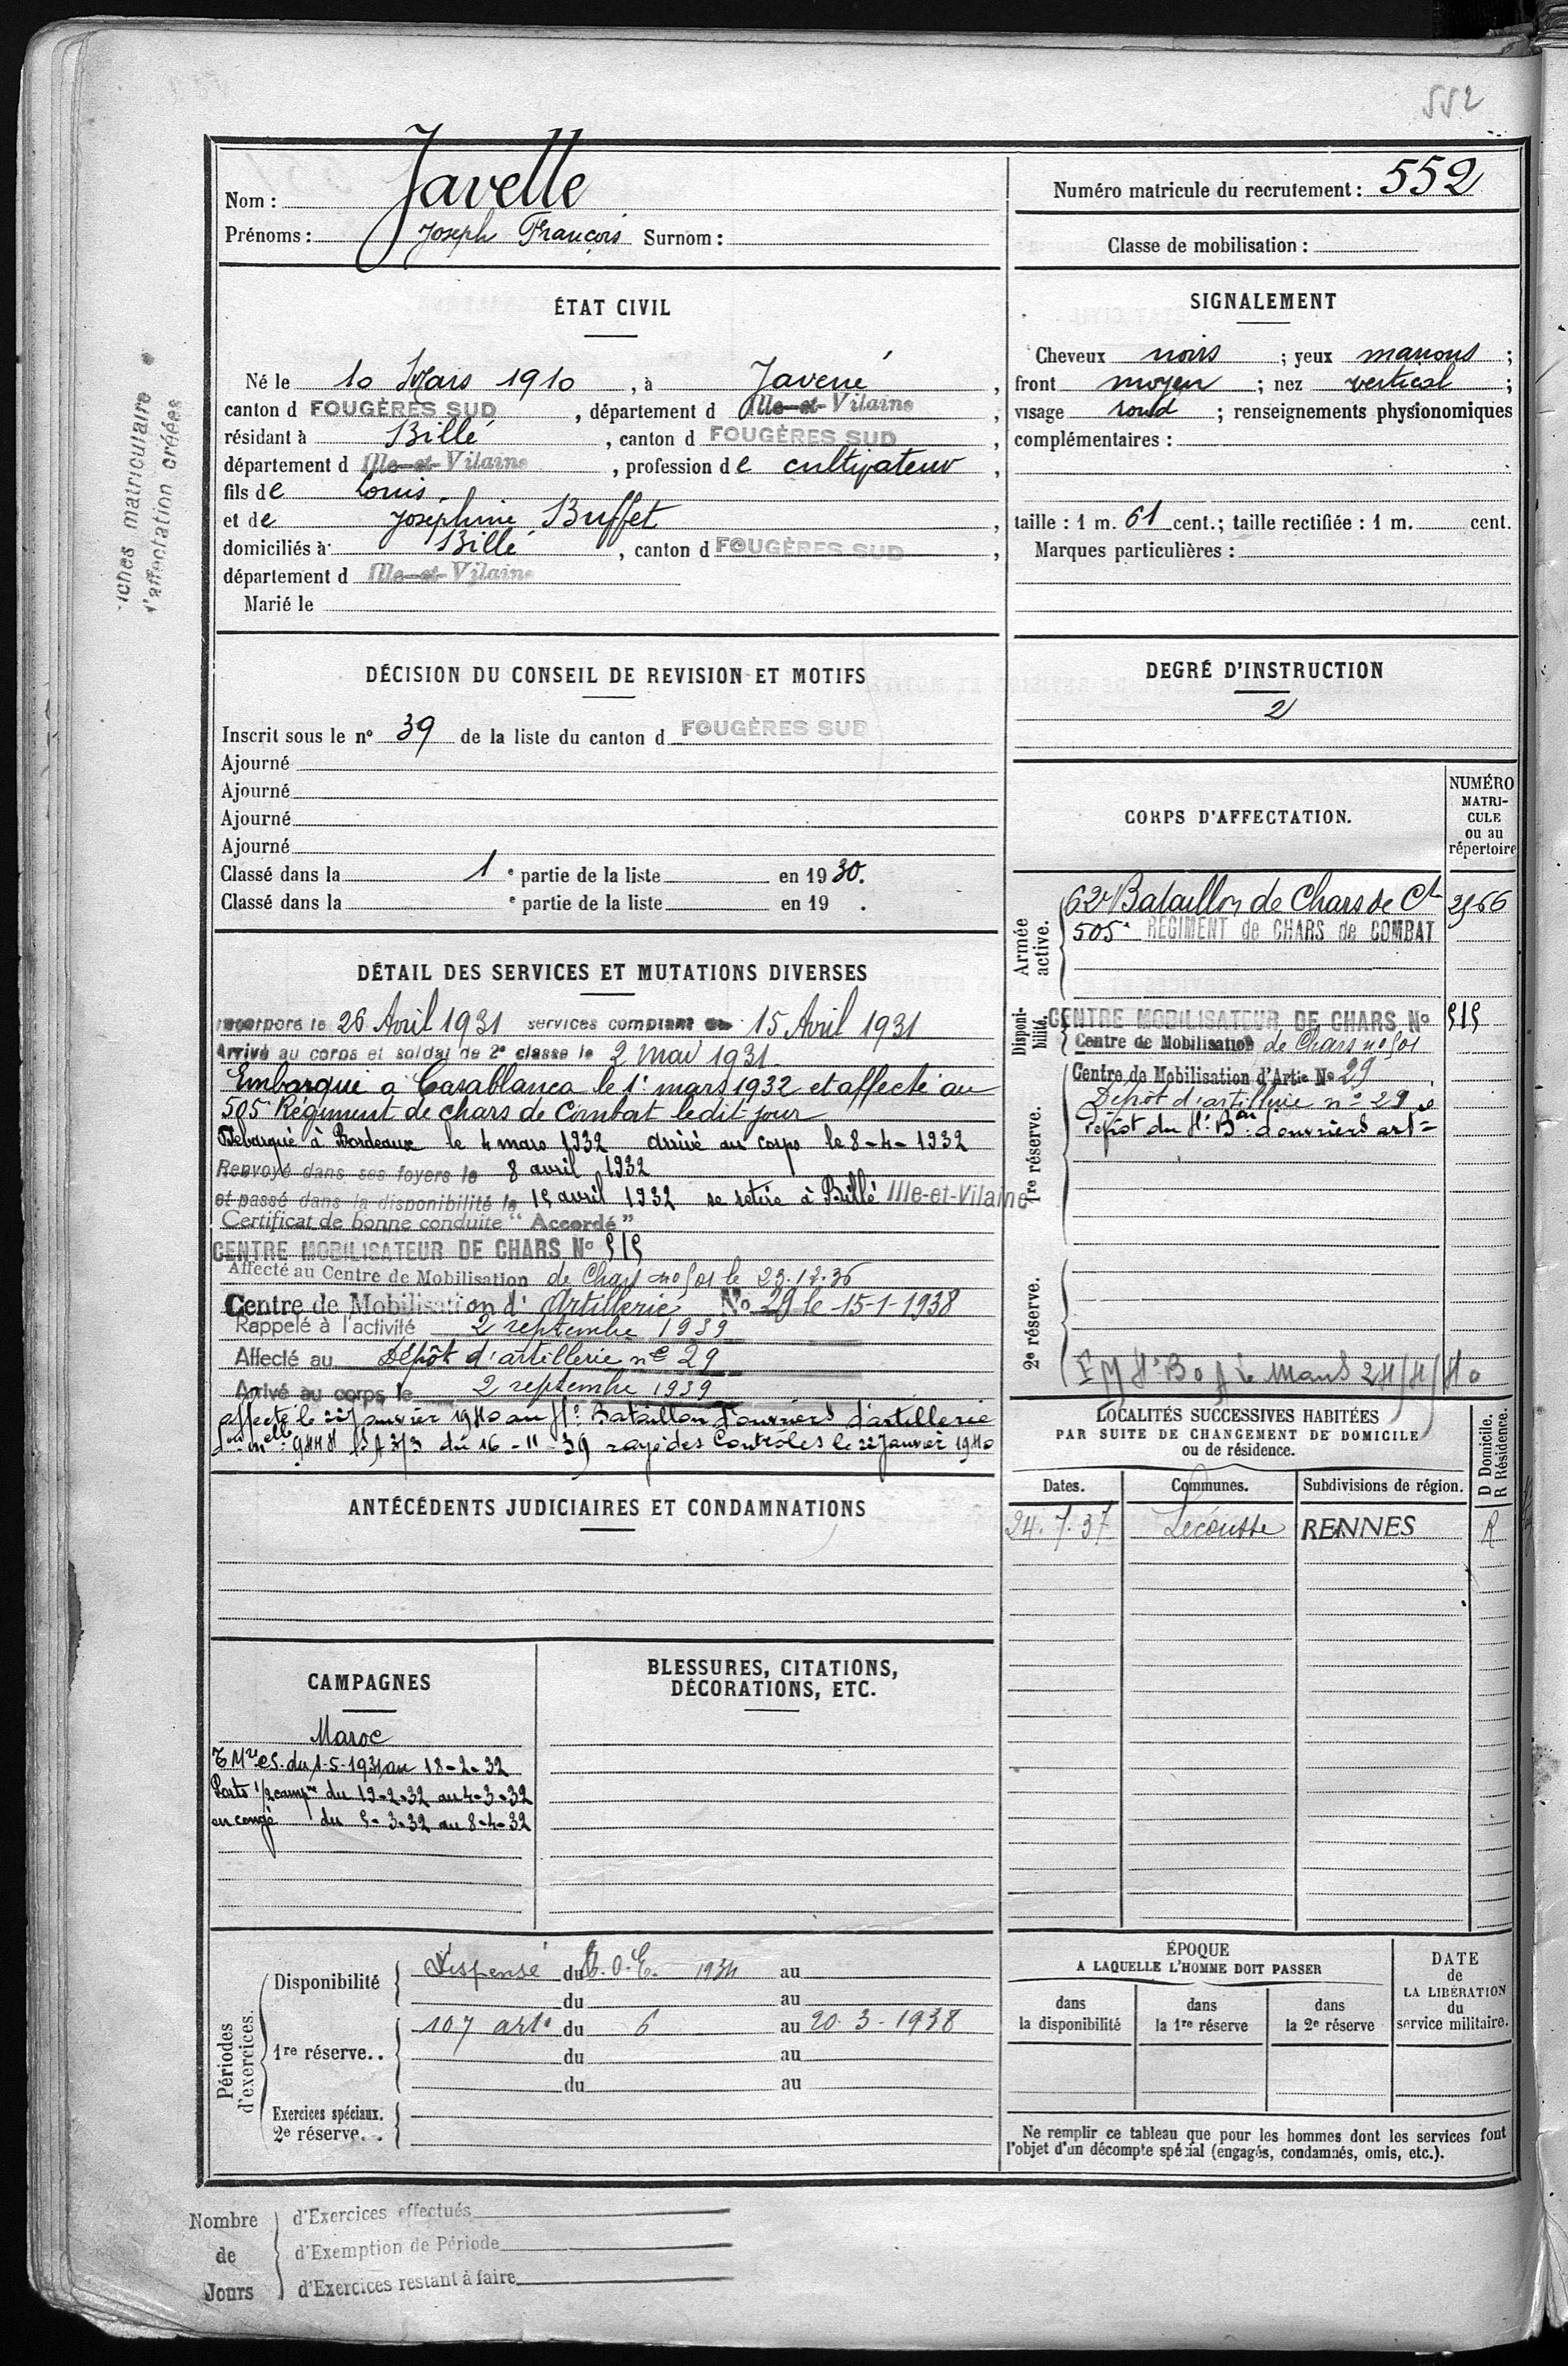 552
Nom : Javelle
Prénoms : Joseph François Surnom :
Numéro matricule du recrutement : 552
Classe de mobilisation :
iches matriculaire
d'affectation créées
ÉTAT CIVIL
Né le 10 Mars 1910, à Javené,
canton d FOUGÈRES SUD, département d Ille-et-Vilaine,
résidant à Billé, canton d FOUGÈRES SUD,
département d Ille-et-Vilaine, profession de cultivateur,
fils de Louis
et de Joséphine Buffet,
domiciliés à Billé, canton d FOUGÈRES SUD,
département d Ille-et-Vilaine
Marié le
SIGNALEMENT
Cheveux noirs ; yeux marrons ;
front moyen ; nez vertical ;
visage rond ; renseignements physionomiques
complémentaires :
taille : 1 m. 61 cent.; taille rectifiée : 1 m. cent.
Marques particulières :
DÉCISION DU CONSEIL DE REVISION ET MOTIFS
Inscrit sous le nº 39 de la liste du canton d FOUGÈRES SUD
Ajourné
Ajourné
Ajourné
Ajourné
Classé dans la 1 e partie de la liste en 1930.
Classé dans la e partie de la liste en 19 .
DEGRÉ D'INSTRUCTION
2
CORPS D'AFFECTATION.
NUMÉRO
MATRI-
CULE
ou au
répertoire
Armée active.
62e Bataillon de Chars de Ct
505e RÉGIMENT de CHARS de COMBAT
Disponibilité.
CENTRE MOBILISATEUR DE CHARS Nº 515
Centre de Mobilisation de Chars nº 501
1re réserve.
Centre de Mobilisation d'Artie Nº 29
Dépôt d'artillerie nº 29
2e réserve.
DÉTAIL DES SERVICES ET MUTATIONS DIVERSES
Incorporé le 26 Avril 1931 services comptant du 15 Avril 1931
Arrivé au corps et soldat de 2e classe le 2 mai 1931
Embarqué à Casablanca le 1er mars 1932 et affecté au
505e Régiment de chars de Combat ledit jour
Débarqué à Bordeaux le 4 mars 1932 arrivé au corps le 8-4-1932
Renvoyé dans ses foyers le 8 avril 1932
et passé dans la disponibilité le 15 avril 1932 se retire à Billé Ille-et-Vilaine
Certificat de bonne conduite "Accordé"
CENTRE MOBILISATEUR DE CHARS Nº 515
Affecté au Centre de Mobilisation de Chars nº 501 le 23.12.36
Centre de Mobilisation d'Artillerie Nº 29 le 15-1-1938
Rappelé à l'activité 2 septembre 1939
Affecté au Dépôt d'artillerie nº 29
Arrivé au corps le 2 septembre 1939
affecté le 22 Janvier 1940 au Bataillon d'ouvriers d'artillerie
du 16-11-39 rayé des Contrôles le 22 Janvier 1940
LOCALITÉS SUCCESSIVES HABITÉES
PAR SUITE DE CHANGEMENT DE DOMICILE
ou de résidence.
D Domicile.
R Résidence.
Dates. Communes. Subdivisions de région.
24.7.37 Lécousse RENNES R
ANTÉCÉDENTS JUDICIAIRES ET CONDAMNATIONS
CAMPAGNES
Maroc
du 1-5-1931 au 18-2-32
du 19-2-32 au 4-3-32
en congé du 5-3-32 au 8-4-32
BLESSURES, CITATIONS,
DÉCORATIONS, ETC.
Périodes d'exercices.
Disponibilité Dispensé du 1934 au
du au
1re réserve.. 107 arte du 6 au 20-3-1938
du au
du au
Exercices spéciaux.
2e réserve. .
ÉPOQUE
A LAQUELLE L'HOMME DOIT PASSER
dans la disponibilité
dans la 1re réserve
dans la 2e réserve
DATE
de
LA LIBÉRATION
du
service militaire.
Ne remplir ce tableau que pour les hommes dont les services font
l'objet d'un décompte spécial (engagés, condamnés, omis, etc.).
Nombre de Jours
d'Exercices effectués
d'Exemption de Période
d'Exercices restant à faire